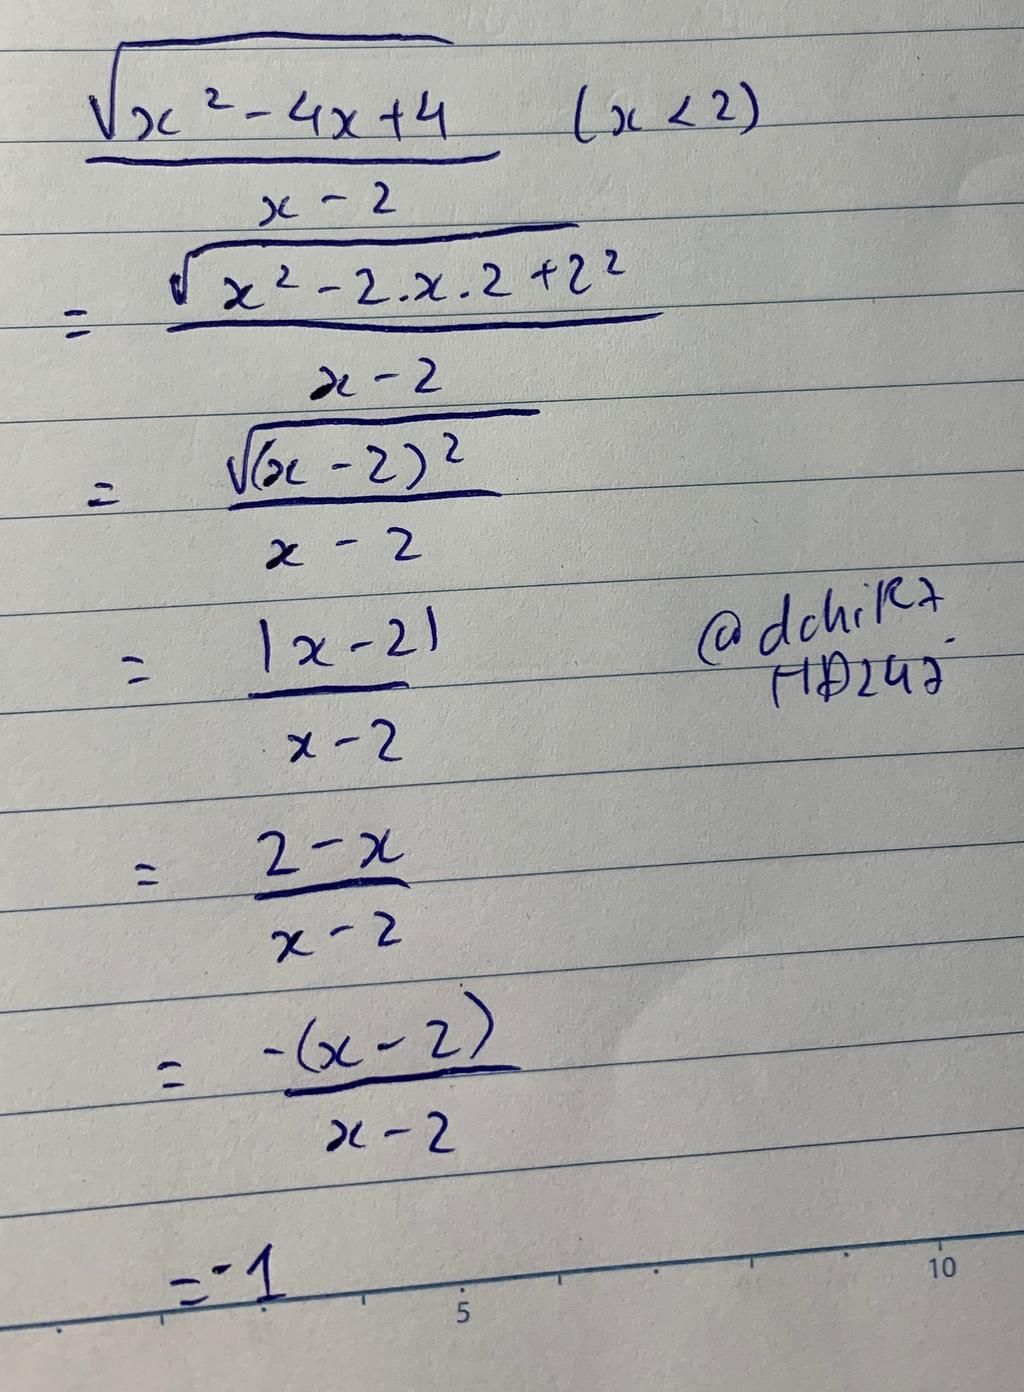 √x² - 4x + 4 (x < 2)
x - 2
= √x² - 2.x.2 + 2²
x - 2
= √(x - 2)²
x - 2
= |x - 2|
x - 2
@dchiR7
HD247
= 2 - x
x - 2
= -(x - 2)
x - 2
= -1
5
10